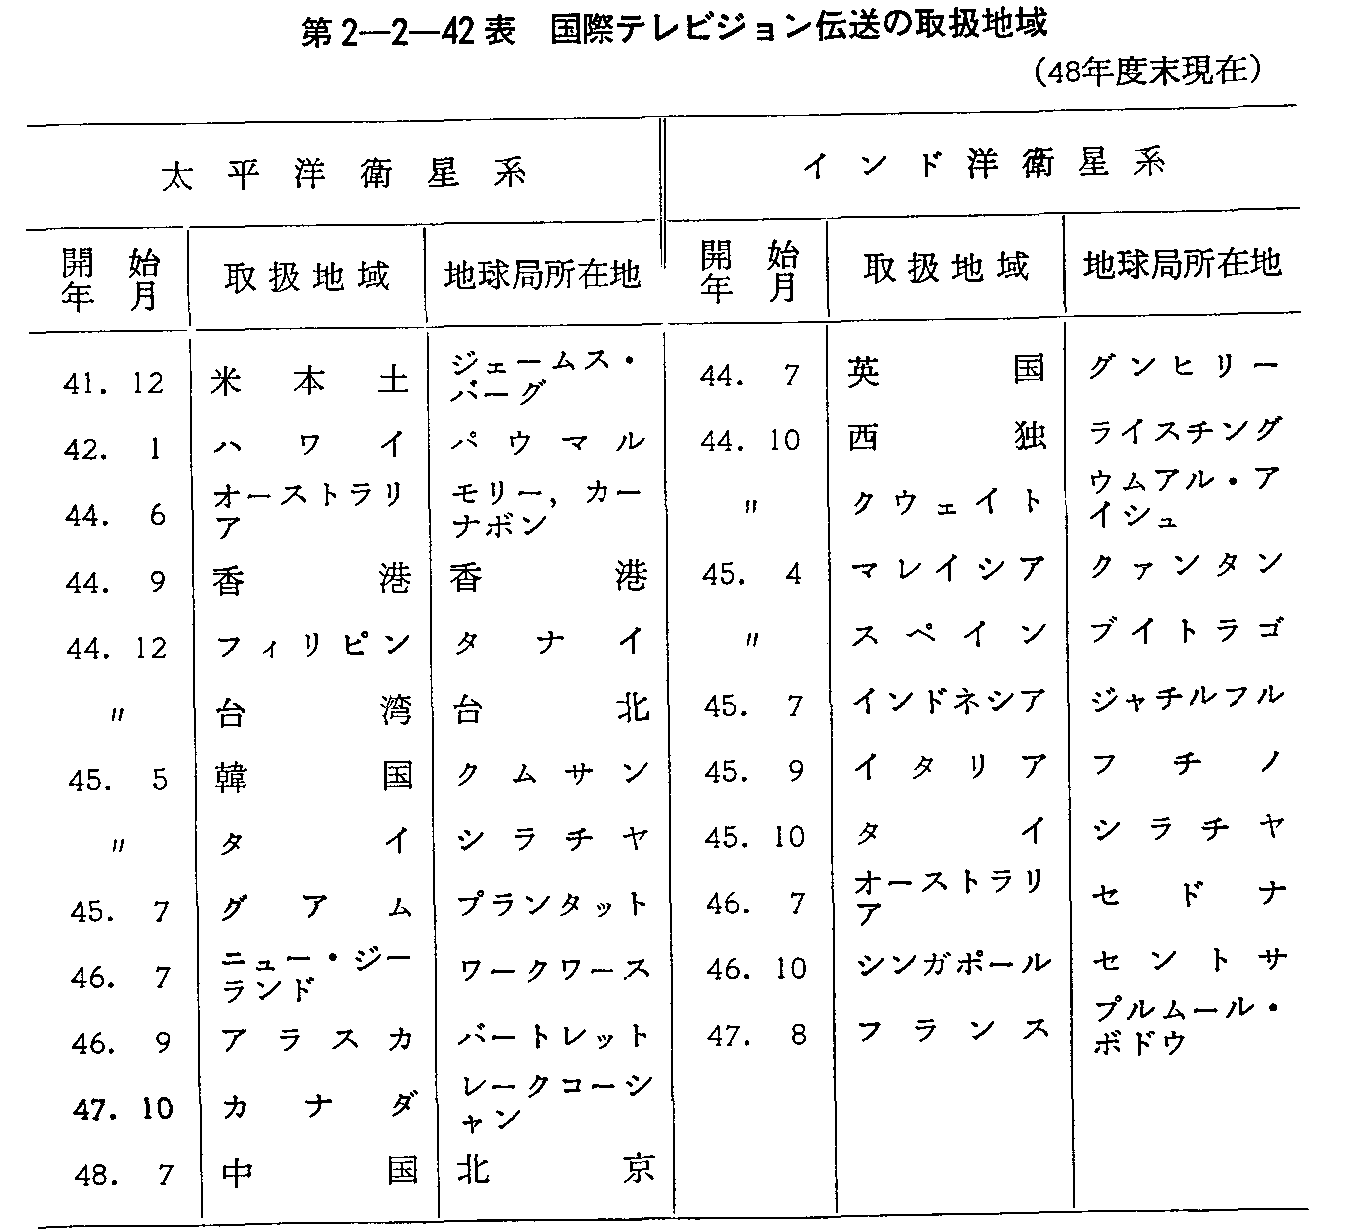 第2―2―42表　国際テレビジョン伝送の取扱地域
(48年度末現在)
太平洋衛星系　インド洋衛星系
開始年月　取扱地域　地球局所在地　開始年月　取扱地域　地球局所在地
41. 12　米本土　ジェームス・バーグ　44. 7　英国　グンヒリー
42. 1　ハワイ　パウマル　44. 10　西独　ライスチング
44. 6　オーストラリア　モリー，カーナボン　〃　クウェイト　ウムアル・アイシュ
44. 9　香港　香港　45. 4　マレイシア　クァンタン
44. 12　フィリピン　タナイ　〃　スペイン　ブイトラゴ
〃　台湾　台北　45. 7　インドネシア　ジャチルフル
45. 5　韓国　クムサン　45. 9　イタリア　フチノ
〃　タイ　シラチヤ　45. 10　タイ　シラチヤ
45. 7　グアム　プランタット　46. 7　オーストラリア　セドナ
46. 7　ニュー・ジーランド　ワークワース　46. 10　シンガポール　セントサ
46. 9　アラスカ　バートレット　47. 8　フランス　プルムール・ボドウ
47. 10　カナダ　レークコーシャン
48. 7　中国　北京